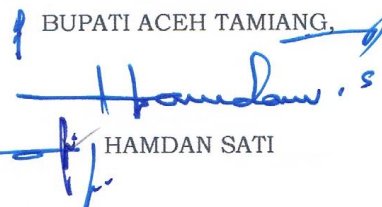 BUPATI ACEH TAMIANG,
Hamdan . s
HAMDAN SATI